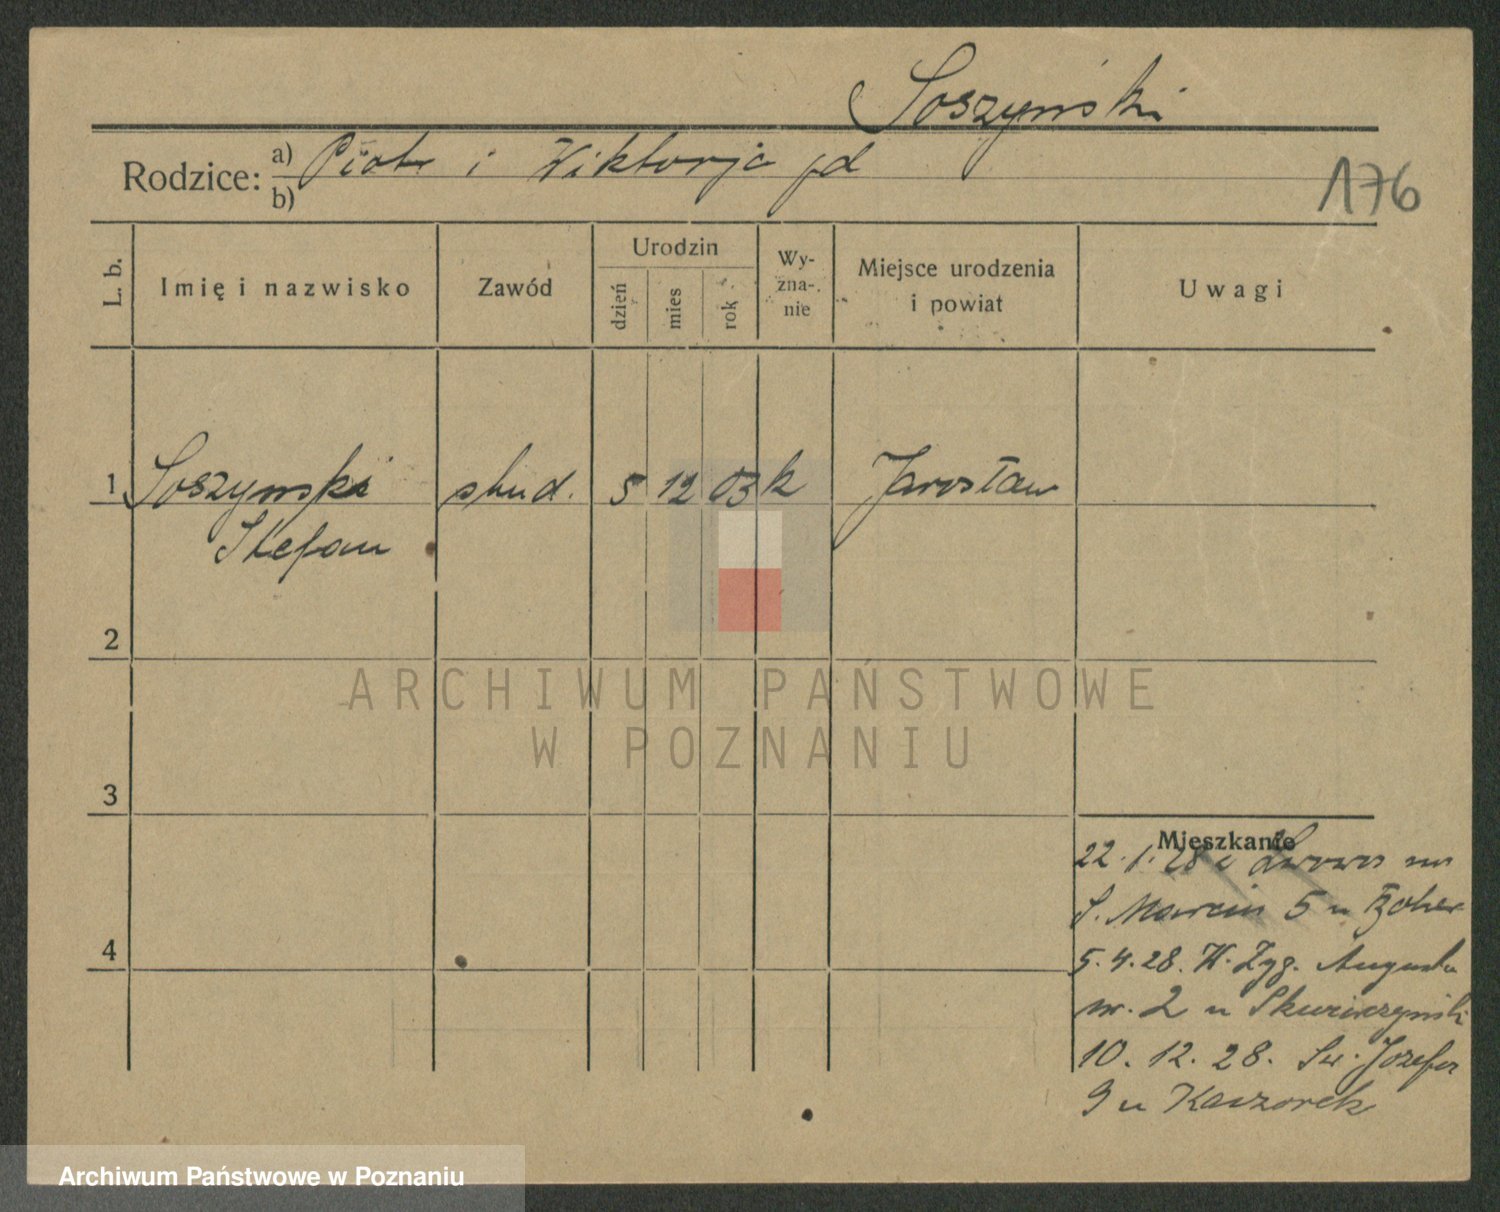 Soszyński
Rodzice: a) Piotr i Wiktorja jd
b)
176
L. b.
Imię i nazwisko
Zawód
Urodzin
dzień
mies
rok
Wy-
zna-
nie
Miejsce urodzenia
i powiat
Uwagi
1 Soszynski stud. 5 12 03 k Jarosław
Stefan
2
3
4
Mieszkanie
22.1.28 z Lwowa
S. Marcin 5 u
5.4.28. W. Zyg. Augusta
nr. 2 u
10.12.28. Św. Józefa
9 u Kaczorek
ARCHIWUM PAŃSTWOWE
W POZNANIU
Archiwum Państwowe w Poznaniu